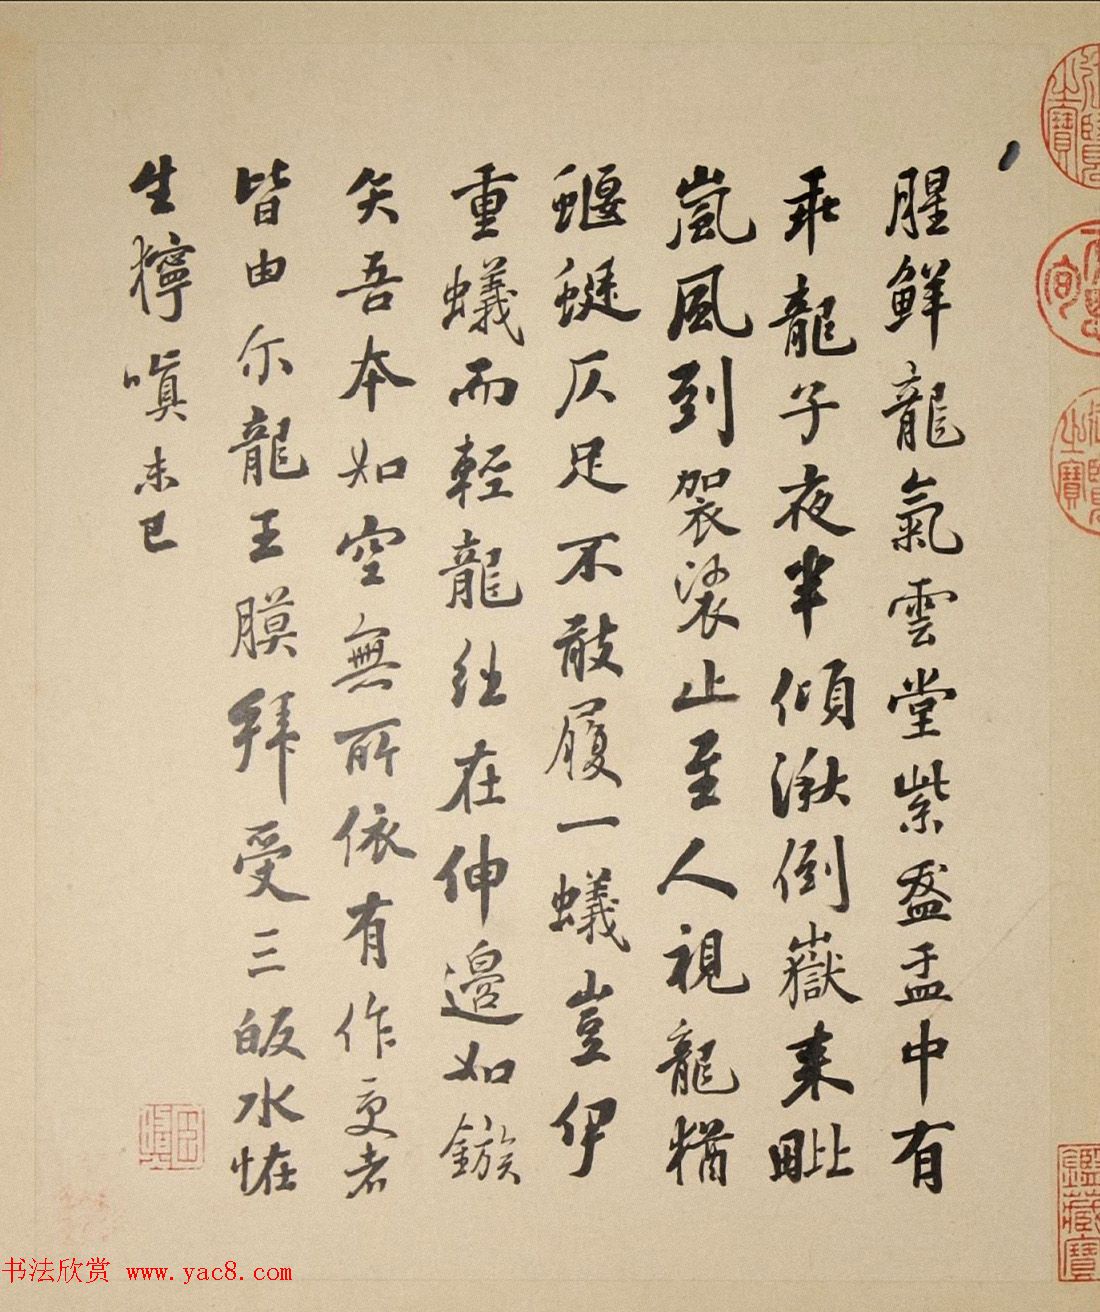 腥鮮龍氣雲堂紫盋盂中有
乖龍子夜半傾湫倒嶽来毗
嵐風到袈裟止至人視龍猶
蝘蜓仄足不敢履一蟻豈伊
重蟻而輕龍往在伸邊如鏃
矢吾本如空無所依有作受者
皆由尔龍王膜拜受三皈水怪
生獰嗔未已
书法欣赏 www.yac8.com